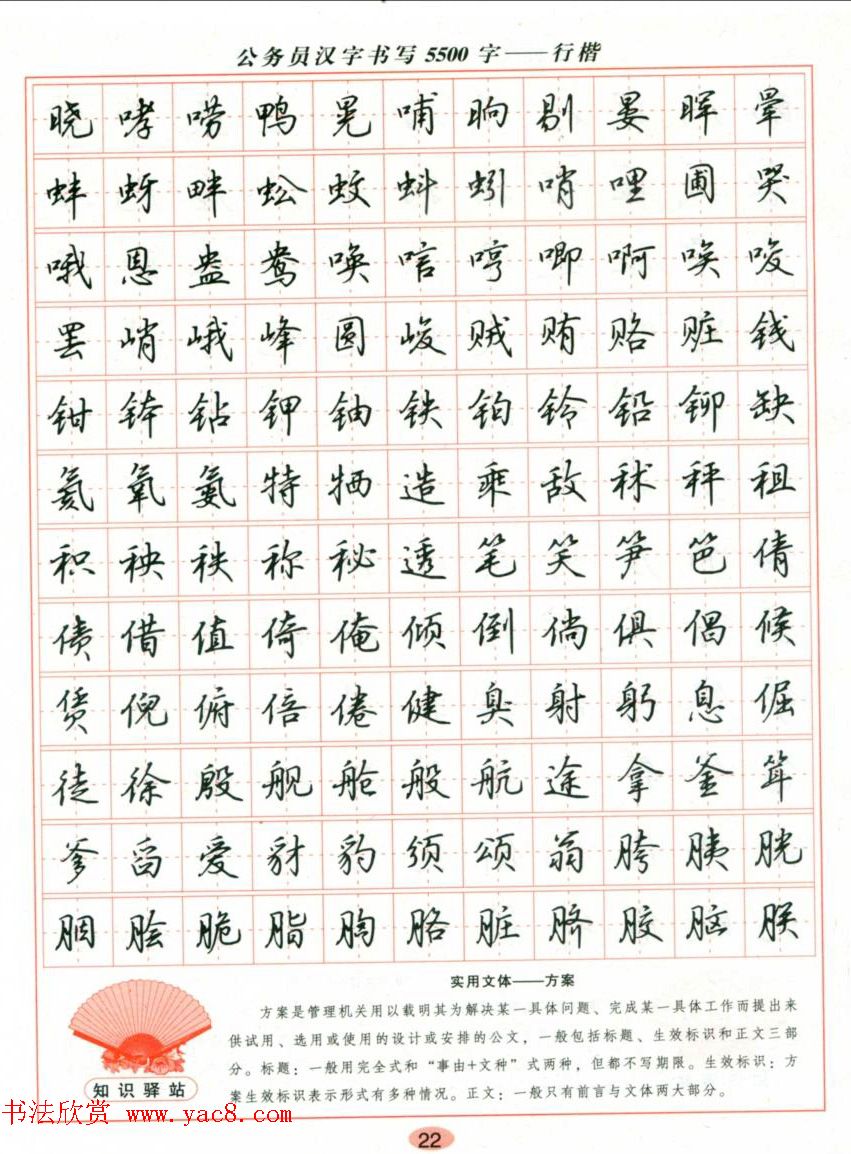 公务员汉字书写5500字——行楷
晓哮唠鸭晃哺晌剔晏晖晕
蚌蚜畔蚣蚊蚪蚓哨哩圃哭
哦恩盎鸯唤唁哼唧啊唉唆
罢峭峨峰圆峻贼贿赂赃钱
钳钵钻钾铀铁铂铃铅铆缺
氦氧氨特牺造乘敌秫秤租
积秧秩称秘透笔笑笋笆倩
债借值倚俺倾倒倘俱倡候
赁倪俯倍倦健臭射躬息倔
徒徐殷舰舱般航途拿釜耸
爹舀爱豺豹颁颂翁胯胰胱
胭脍脆脂胸胳脏脐胶脑朕
实用文体——方案
方案是管理机关用以载明其为解决某一具体问题、完成某一具体工作而提出来
供试用、选用或使用的设计或安排的公文，一般包括标题、生效标识和正文三部
分。标题：一般用完全式和“事由+文种”式两种，但都不写期限。生效标识：方
案生效标识表示形式有多种情况。正文：一般只有前言与文体两大部分。
知识驿站
书法欣赏 www.yac8.com
22